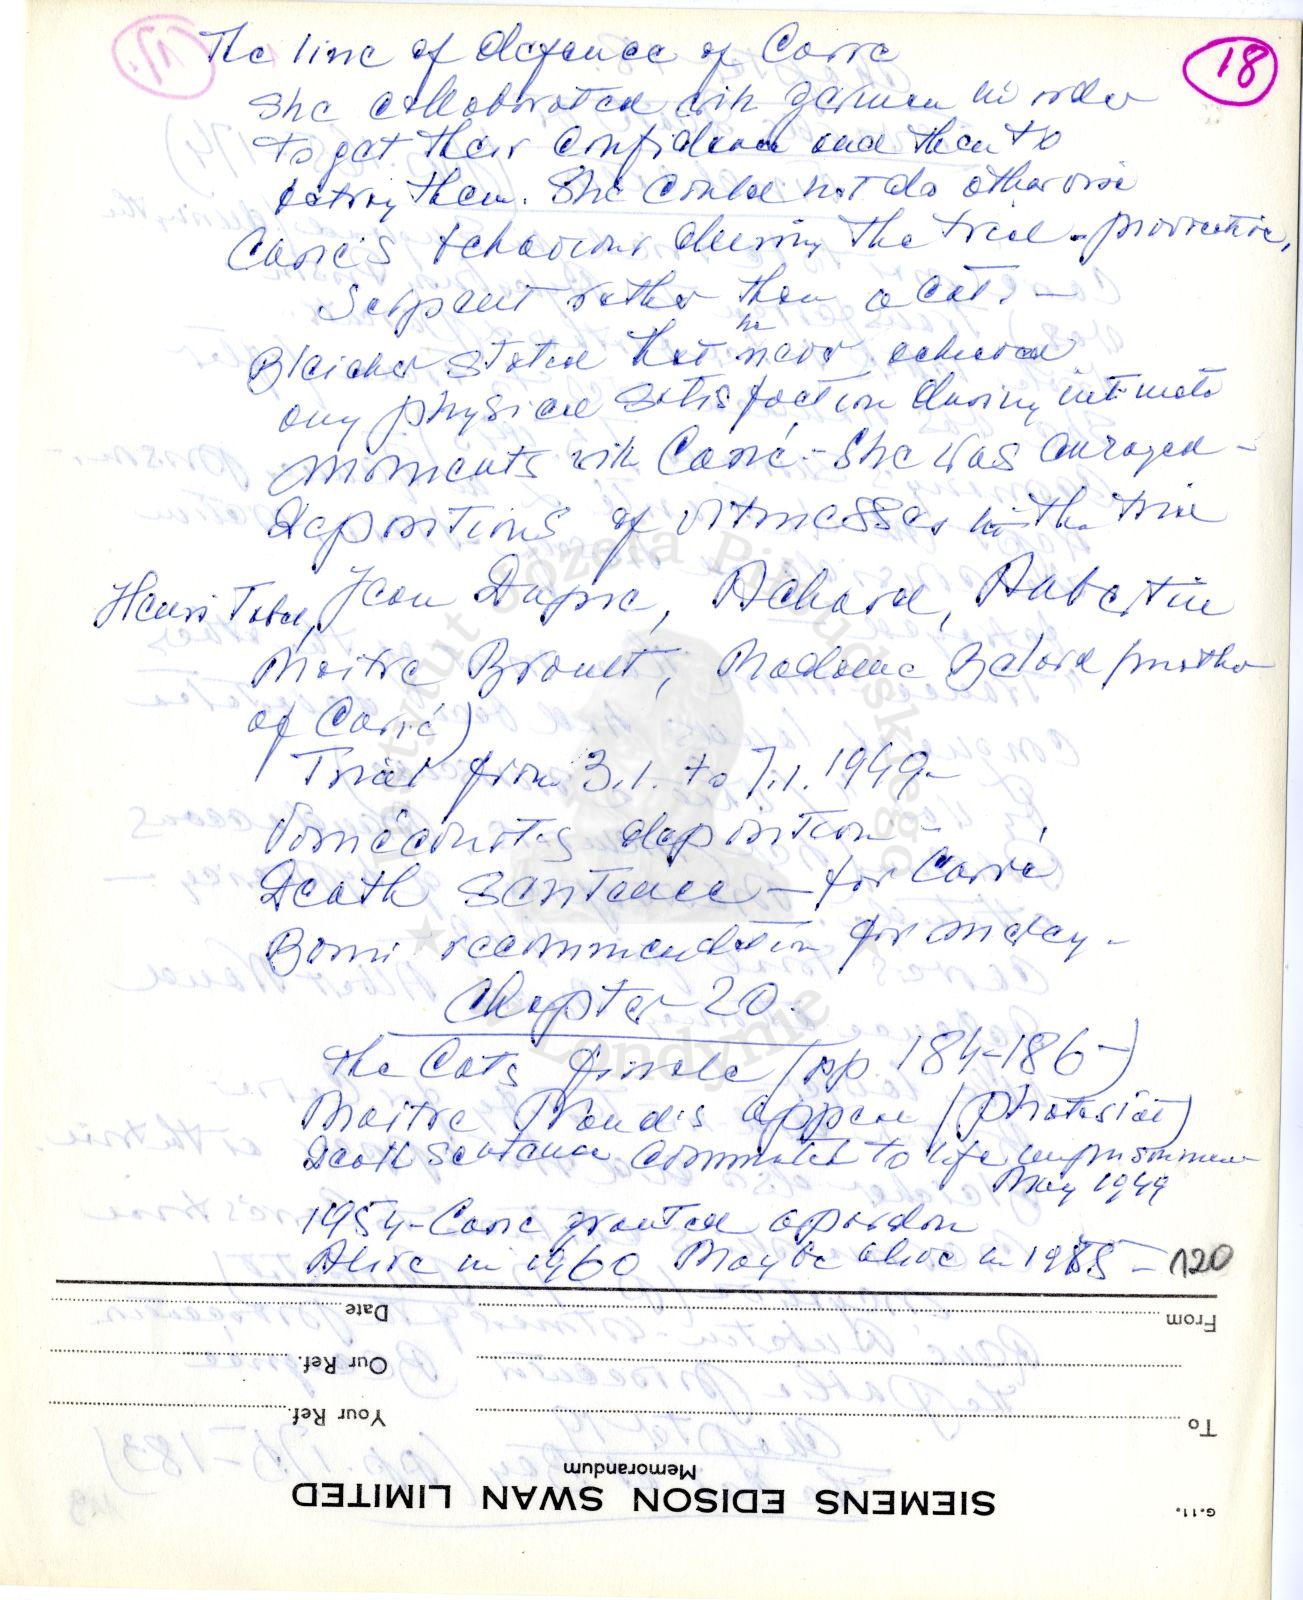 18
The line of defence of Carré
She collaborated with German in order
to get their confidence and then to
betray them. She could not do otherwise
Carré's behaviour during the trial - provocative,
Serpent rather than a cat! -
Bleicher stated that he never achieved
any physical satisfaction during intimate
moments with Carré - She was enraged -
Depositions of witnesses in the trial
Henri Tabet, Jean Dupré, Achard, Aubertin
Maitre Brault, Madame Belard (mother
of Carré)
Trial from 3.1. to 7.1. 1949 -
Vomécourt's deposition -
Death sentence - for Carré
Borni recommendation for mercy -
Chapter 20.
The Cats finale (pp. 184-186-)
Maitre Naud's appeal (Photostat)
Death sentence commuted to life imprisonment
May 1949
1954 - Carré granted a pardon
Alive in 1960 May be alive in 1985 - 120
From
Date
Our Ref.
To
Your Ref.
Memorandum
SIEMENS EDISON SWAN LIMITED
G.11.
Instytut Józefa Piłsudskiego
w Londynie